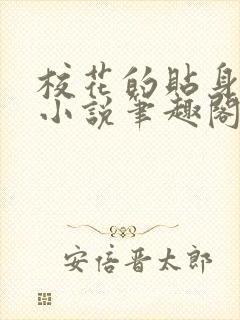 校花的贴身
小说笔趣阁
安倍晋太郎